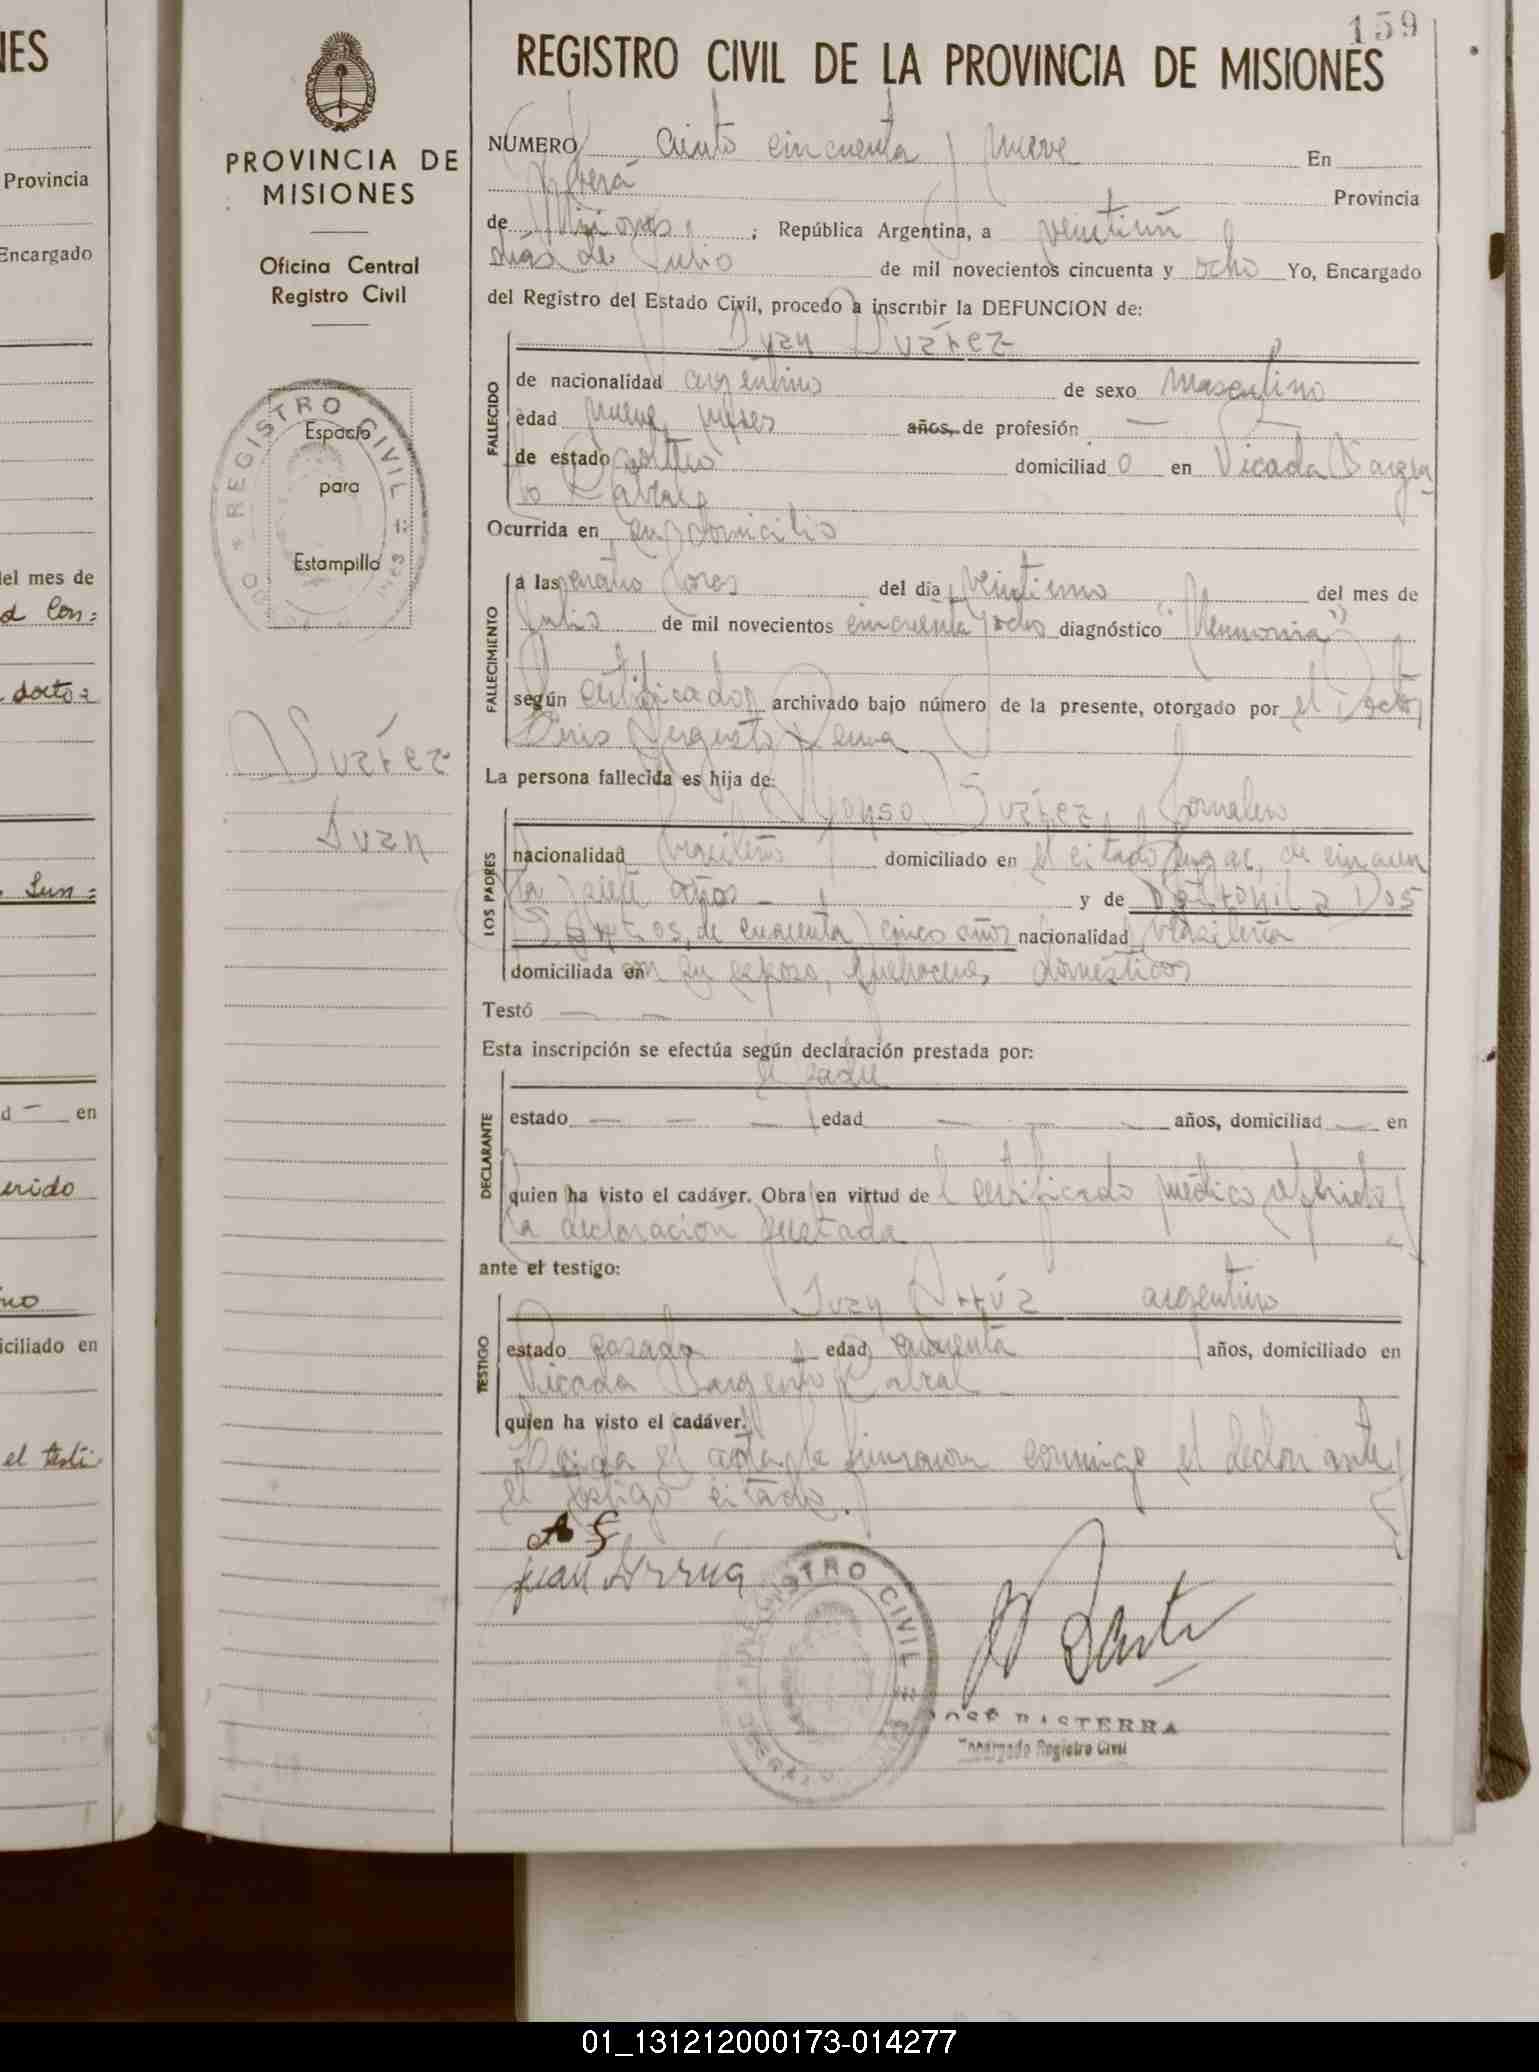 159
REGISTRO CIVIL DE LA PROVINCIA DE MISIONES
PROVINCIA DE
MISIONES
Oficina Central
Registro Civil
REGISTRO CIVIL
Espacio
para
Estampilla
Suárez
Juan
NUMERO ciento cincuenta y nueve En
Oberá Provincia
de Misiones, ; República Argentina, a veintiun
días de Julio de mil novecientos cincuenta y ocho Yo, Encargado
del Registro del Estado Civil, procedo a inscribir la DEFUNCION de:
Juan Suárez
FALLECIDO
de nacionalidad argentino de sexo masculino
edad nueve meses años, de profesión —
de estado soltero domiciliad o en Picada Sargen
to Cabral
Ocurrida en su domicilio
FALLECIMIENTO
a las cuatro horas del día veintiuno del mes de
Julio de mil novecientos cincuenta y ocho diagnóstico "Neumonia"
según certificado archivado bajo número de la presente, otorgado por el Doctor
Luis Augusto
La persona fallecida es hija de:
LOS PADRES
Alfonso Suárez, Jornalero
nacionalidad brasileño domiciliado en el citado lugar, de cincuen
ta y siete años y de Petronila Dos
Santos, de cuarenta y cinco años nacionalidad brasileña
domiciliada en con su esposo, quehaceres domésticos
Testó — —
Esta inscripción se efectúa según declaración prestada por:
DECLARANTE
el padre
estado — — — edad — — — años, domiciliad — en
quien ha visto el cadáver. Obra en virtud del certificado médico referido y
la declaración prestada
ante el testigo:
TESTIGO
Juan Arrúa argentino
estado casado edad cuarenta años, domiciliado en
Picada Sargento Cabral
quien ha visto el cadáver.
Leida el acta, la firmaron conmigo el declarante y
el testigo citado.
A S
juan Arrua
REGISTRO CIVIL
JOSÉ BASTERRA
Encargado Registro Civil
NES
Provincia
Encargado
del mes de
doctor
d — en
iciliado en
el testi
01_131212000173-014277